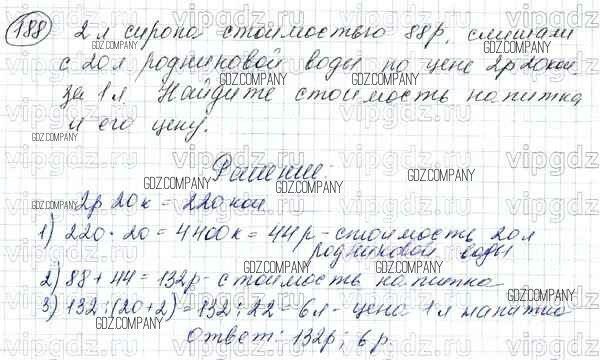 188 2 л сиропа стоимостью 88 р. смешали
с 20 л родниковой воды по цене 2р 20 коп.
за 1 л Найдите стоимость напитка
и его цену.
Решение:
2р 20к = 220коп.
1) 220 · 20 = 4400к = 44р - стоимость 20л
родниковой воды
2) 88 + 44 = 132р - стоимость напитка
3) 132 : (20+2) = 132 : 22 = 6л - цена 1л напитка
Ответ: 132р; 6р.